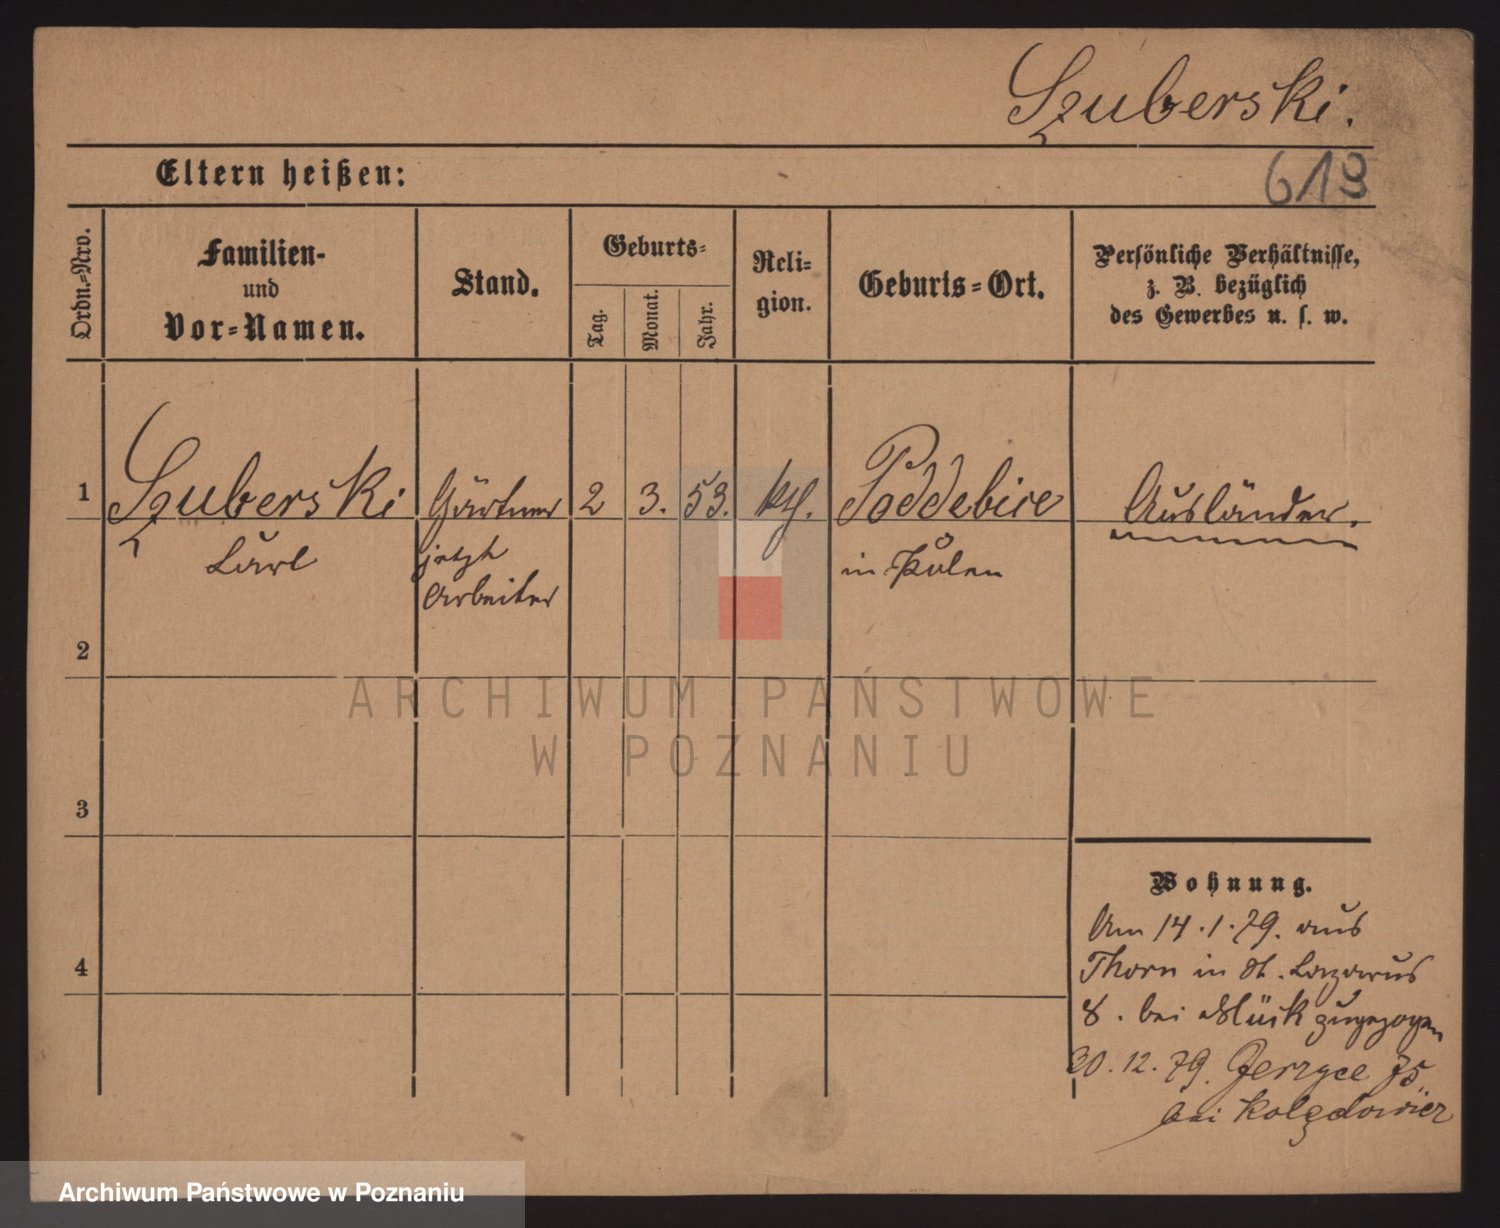 Szuberski.
Eltern heißen:
613
Ordn.=Nro.
Familien-
und
Vor=Namen.
Stand.
Geburts=
Tag.
Monat.
Jahr.
Reli=
gion.
Geburts=Ort.
Persönliche Verhältnisse,
z. B. bezüglich
des Gewerbes u. s. w.
1
Szuberski
Carl
Gärtner
jetzt
Arbeiter
2
3.
53.
kth.
Poddebice
in Polen
Ausländer.
2
3
4
Wohnung.
Am 14.1.79. aus
Thorn in St. Lazarus
8. bei zugezogen
30.12.79. Jerzyce 75
bei
ARCHIWUM PAŃSTWOWE
W POZNANIU
Archiwum Państwowe w Poznaniu